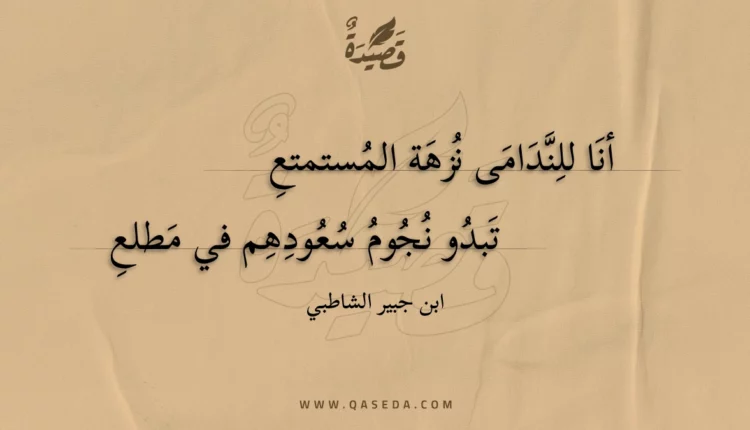 قَصِيدَةٌ
أنَا للِنَّدَامَى نُزهَة المُستمتعِ
تَبدُو نُجُومُ سُعُودِهِم في مَطلعِ
ابن جبير الشاطبي
WWW.QASEDA.COM